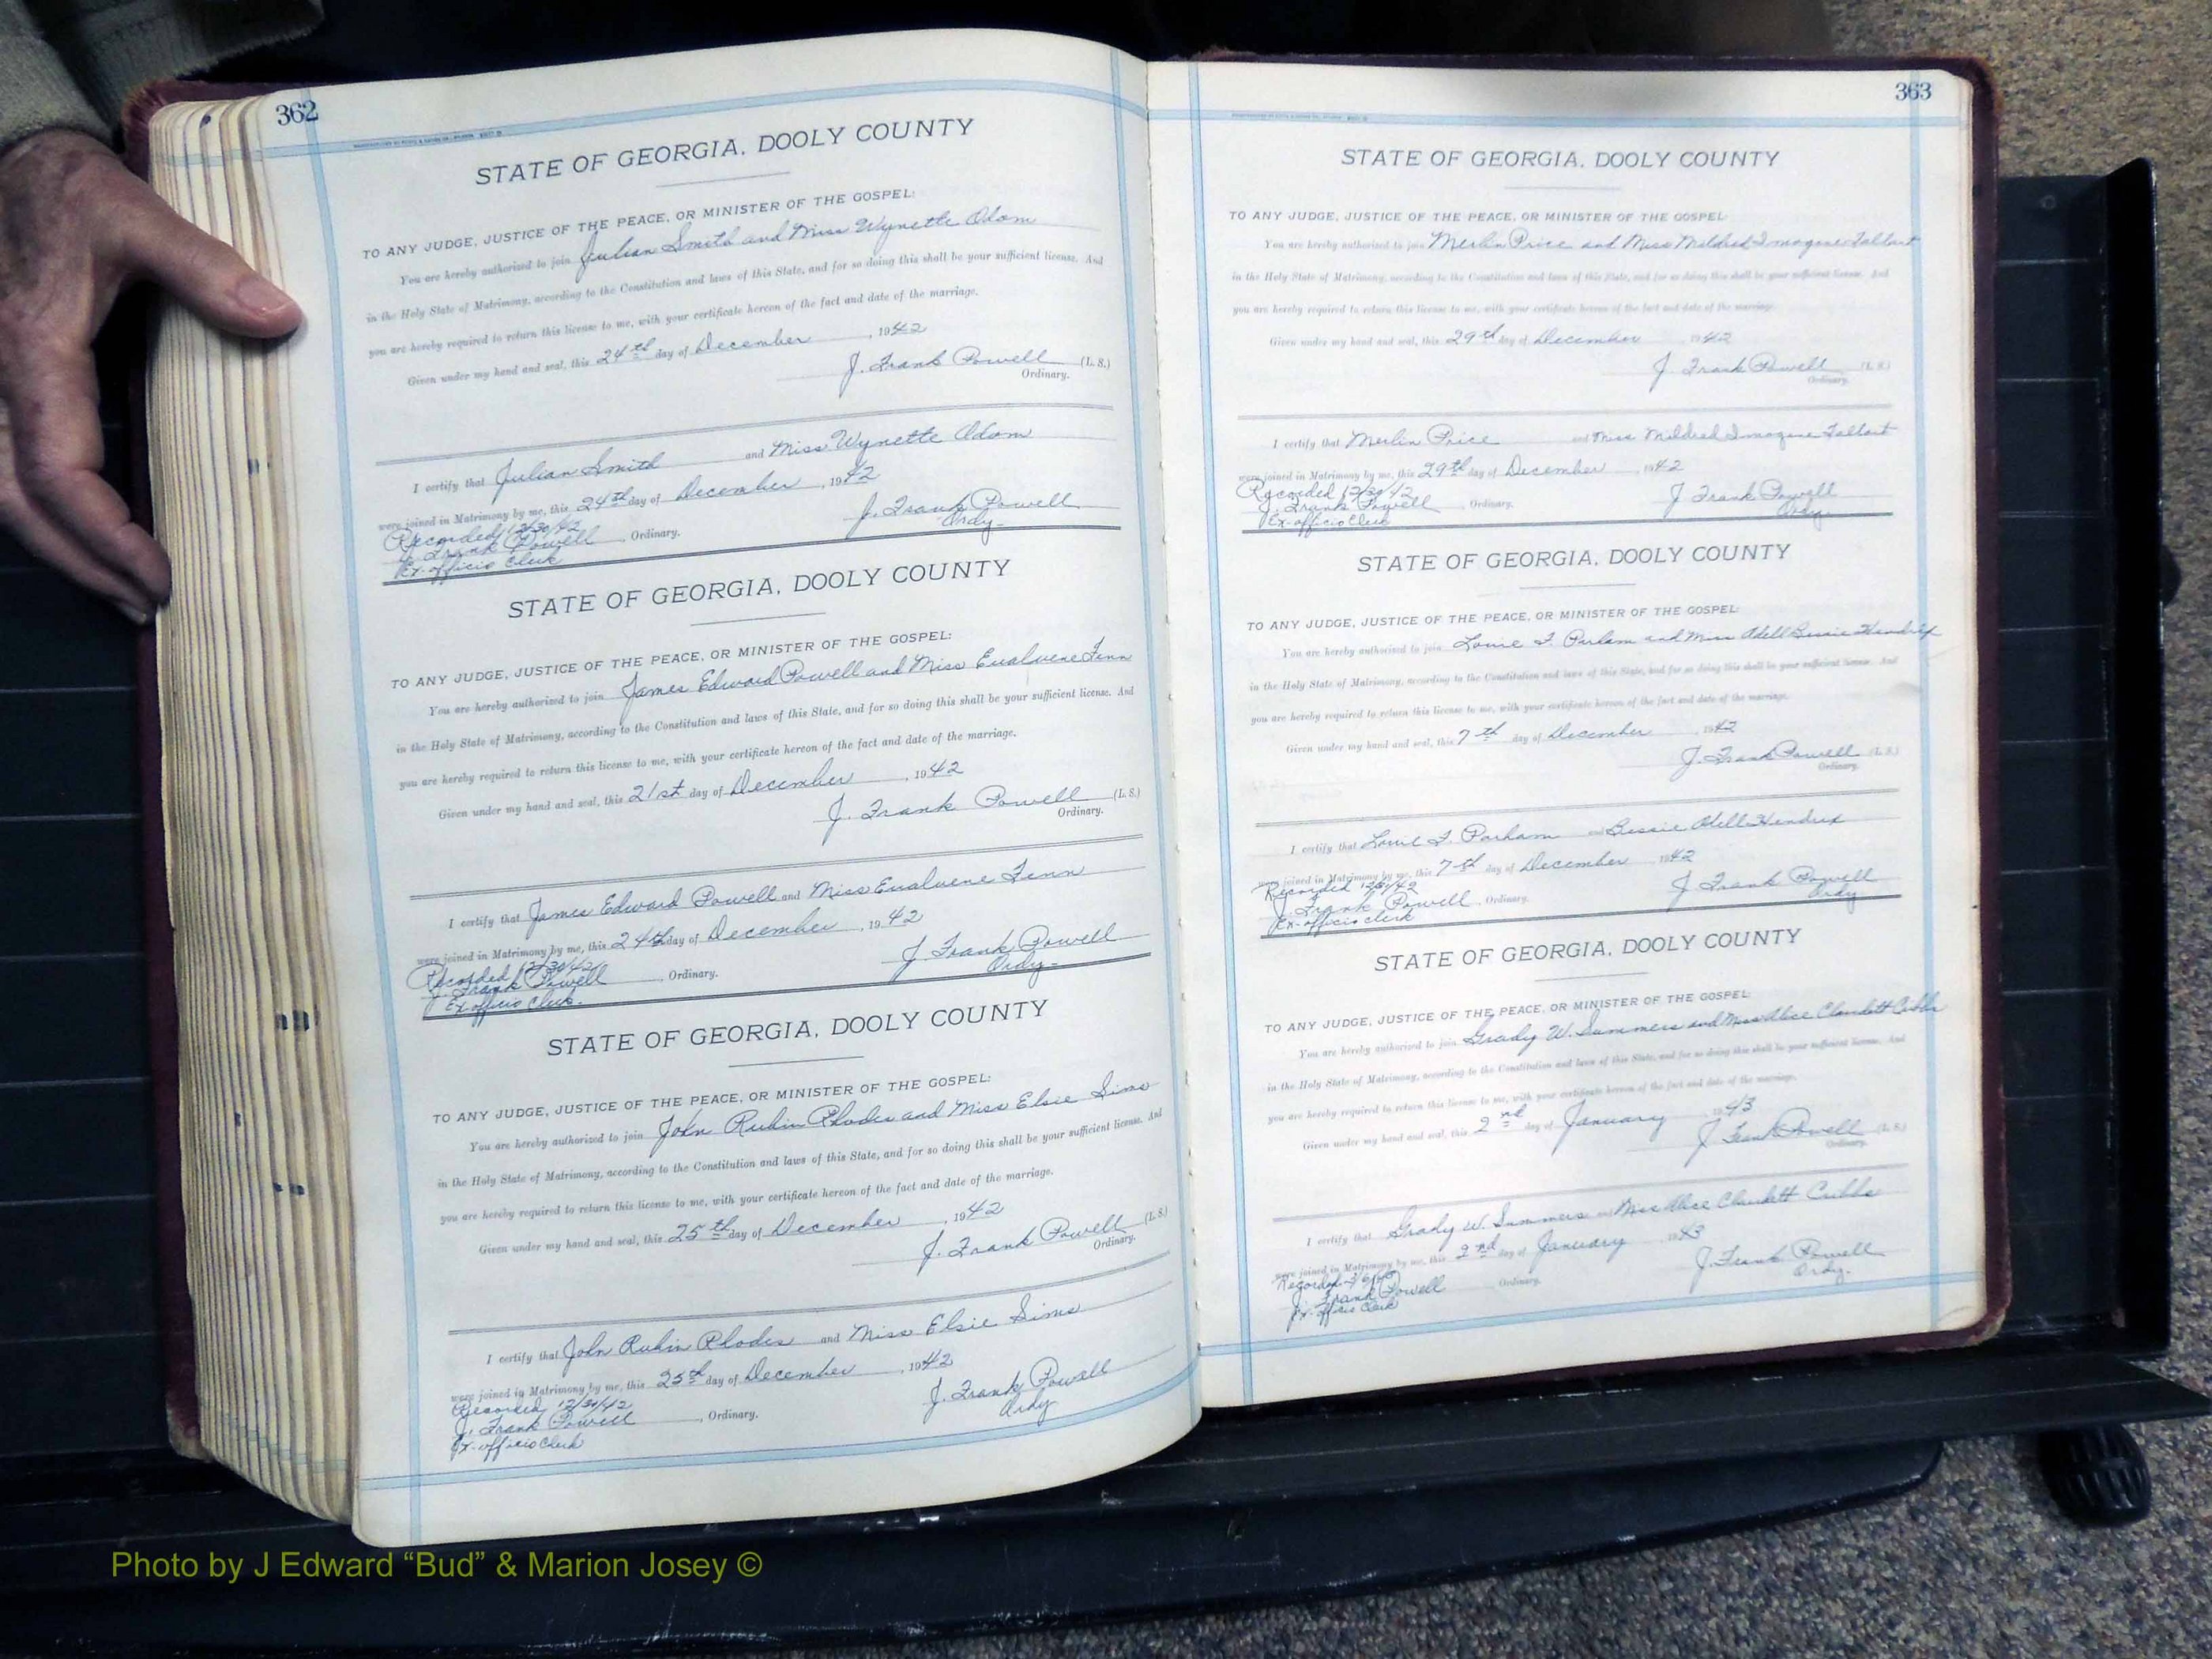 362
STATE OF GEORGIA, DOOLY COUNTY
TO ANY JUDGE, JUSTICE OF THE PEACE, OR MINISTER OF THE GOSPEL:
You are hereby authorized to join Julian Smith and Miss Wynette Odom
in the Holy State of Matrimony, according to the Constitution and laws of this State, and for so doing this shall be your sufficient license. And
you are hereby required to return this license to me, with your certificate hereon of the fact and date of the marriage.
Given under my hand and seal, this 24th day of December, 1942
J. Frank Powell (L. S.)
Ordinary.
I certify that Julian Smith and Miss Wynette Odom
were joined in Matrimony by me, this 24th day of December, 1942
Recorded 12/30/42 J. Frank Powell
J. Frank Powell, Ordinary. Ordy-
Ex-officio Clerk
STATE OF GEORGIA, DOOLY COUNTY
TO ANY JUDGE, JUSTICE OF THE PEACE, OR MINISTER OF THE GOSPEL:
You are hereby authorized to join James Edward Powell and Miss Eualuene Fenn
in the Holy State of Matrimony, according to the Constitution and laws of this State, and for so doing this shall be your sufficient license. And
you are hereby required to return this license to me, with your certificate hereon of the fact and date of the marriage.
Given under my hand and seal, this 21st day of December, 1942
J. Frank Powell (L. S.)
Ordinary.
I certify that James Edward Powell and Miss Eualuene Fenn
were joined in Matrimony by me, this 24th day of December, 1942
Recorded 12/30/42 J Frank Powell
J. Frank Powell, Ordinary. Ordy-
Ex officio Clerk.
STATE OF GEORGIA, DOOLY COUNTY
TO ANY JUDGE, JUSTICE OF THE PEACE, OR MINISTER OF THE GOSPEL:
You are hereby authorized to join John Rubin Rhodes and Miss Elsie Sims
in the Holy State of Matrimony, according to the Constitution and laws of this State, and for so doing this shall be your sufficient license. And
you are hereby required to return this license to me, with your certificate hereon of the fact and date of the marriage.
Given under my hand and seal, this 25th day of December, 1942
J. Frank Powell (L. S.)
Ordinary.
I certify that John Rubin Rhodes and Miss Elsie Sims
were joined in Matrimony by me, this 25th day of December, 1942
Recorded 12/30/42 J. Frank Powell
J. Frank Powell, Ordinary. Ordy
Ex-officio Clerk
363
STATE OF GEORGIA, DOOLY COUNTY
TO ANY JUDGE, JUSTICE OF THE PEACE, OR MINISTER OF THE GOSPEL:
You are hereby authorized to join Merlin Price and Miss Mildred Imogene
in the Holy State of Matrimony, according to the Constitution and laws of this State, and for so doing this shall be your sufficient license. And
you are hereby required to return this license to me, with your certificate hereon of the fact and date of the marriage.
Given under my hand and seal, this 29th day of December 1942
J Frank Powell (L. S.)
Ordinary.
I certify that Merlin Price and Miss Mildred Imogene
were joined in Matrimony by me, this 29th day of December, 1942
Recorded 12/30/42 J Frank Powell
J. Frank Powell, Ordinary. Ordy.
Ex-officio Clerk
STATE OF GEORGIA, DOOLY COUNTY
TO ANY JUDGE, JUSTICE OF THE PEACE, OR MINISTER OF THE GOSPEL:
You are hereby authorized to join Louie F. Parham and Miss Odell Bessie Hendrix
in the Holy State of Matrimony, according to the Constitution and laws of this State, and for so doing this shall be your sufficient license. And
you are hereby required to return this license to me, with your certificate hereon of the fact and date of the marriage.
Given under my hand and seal, this 7th day of December, 1942
J. Frank Powell (L. S.)
Ordinary.
I certify that Louie F. Parham and Bessie Odell Hendrix
were joined in Matrimony by me, this 7th day of December, 1942
Recorded J Frank Powell
J. Frank Powell, Ordinary. Ordy
Ex-officio clerk
STATE OF GEORGIA, DOOLY COUNTY
TO ANY JUDGE, JUSTICE OF THE PEACE, OR MINISTER OF THE GOSPEL:
You are hereby authorized to join Grady W. Summers and Miss Alice Claudett Cribbs
in the Holy State of Matrimony, according to the Constitution and laws of this State, and for so doing this shall be your sufficient license. And
you are hereby required to return this license to me, with your certificate hereon of the fact and date of the marriage.
Given under my hand and seal, this 2nd day of January 1943
J Frank Powell (L. S.)
Ordinary.
I certify that Grady W. Summers and Miss Alice Claudett Cribbs
were joined in Matrimony by me, this 2nd day of January, 1943
Recorded J. Frank Powell
J. Frank Powell Ordinary. Ordy.
Ex-officio Clerk
Photo by J Edward “Bud” & Marion Josey ©